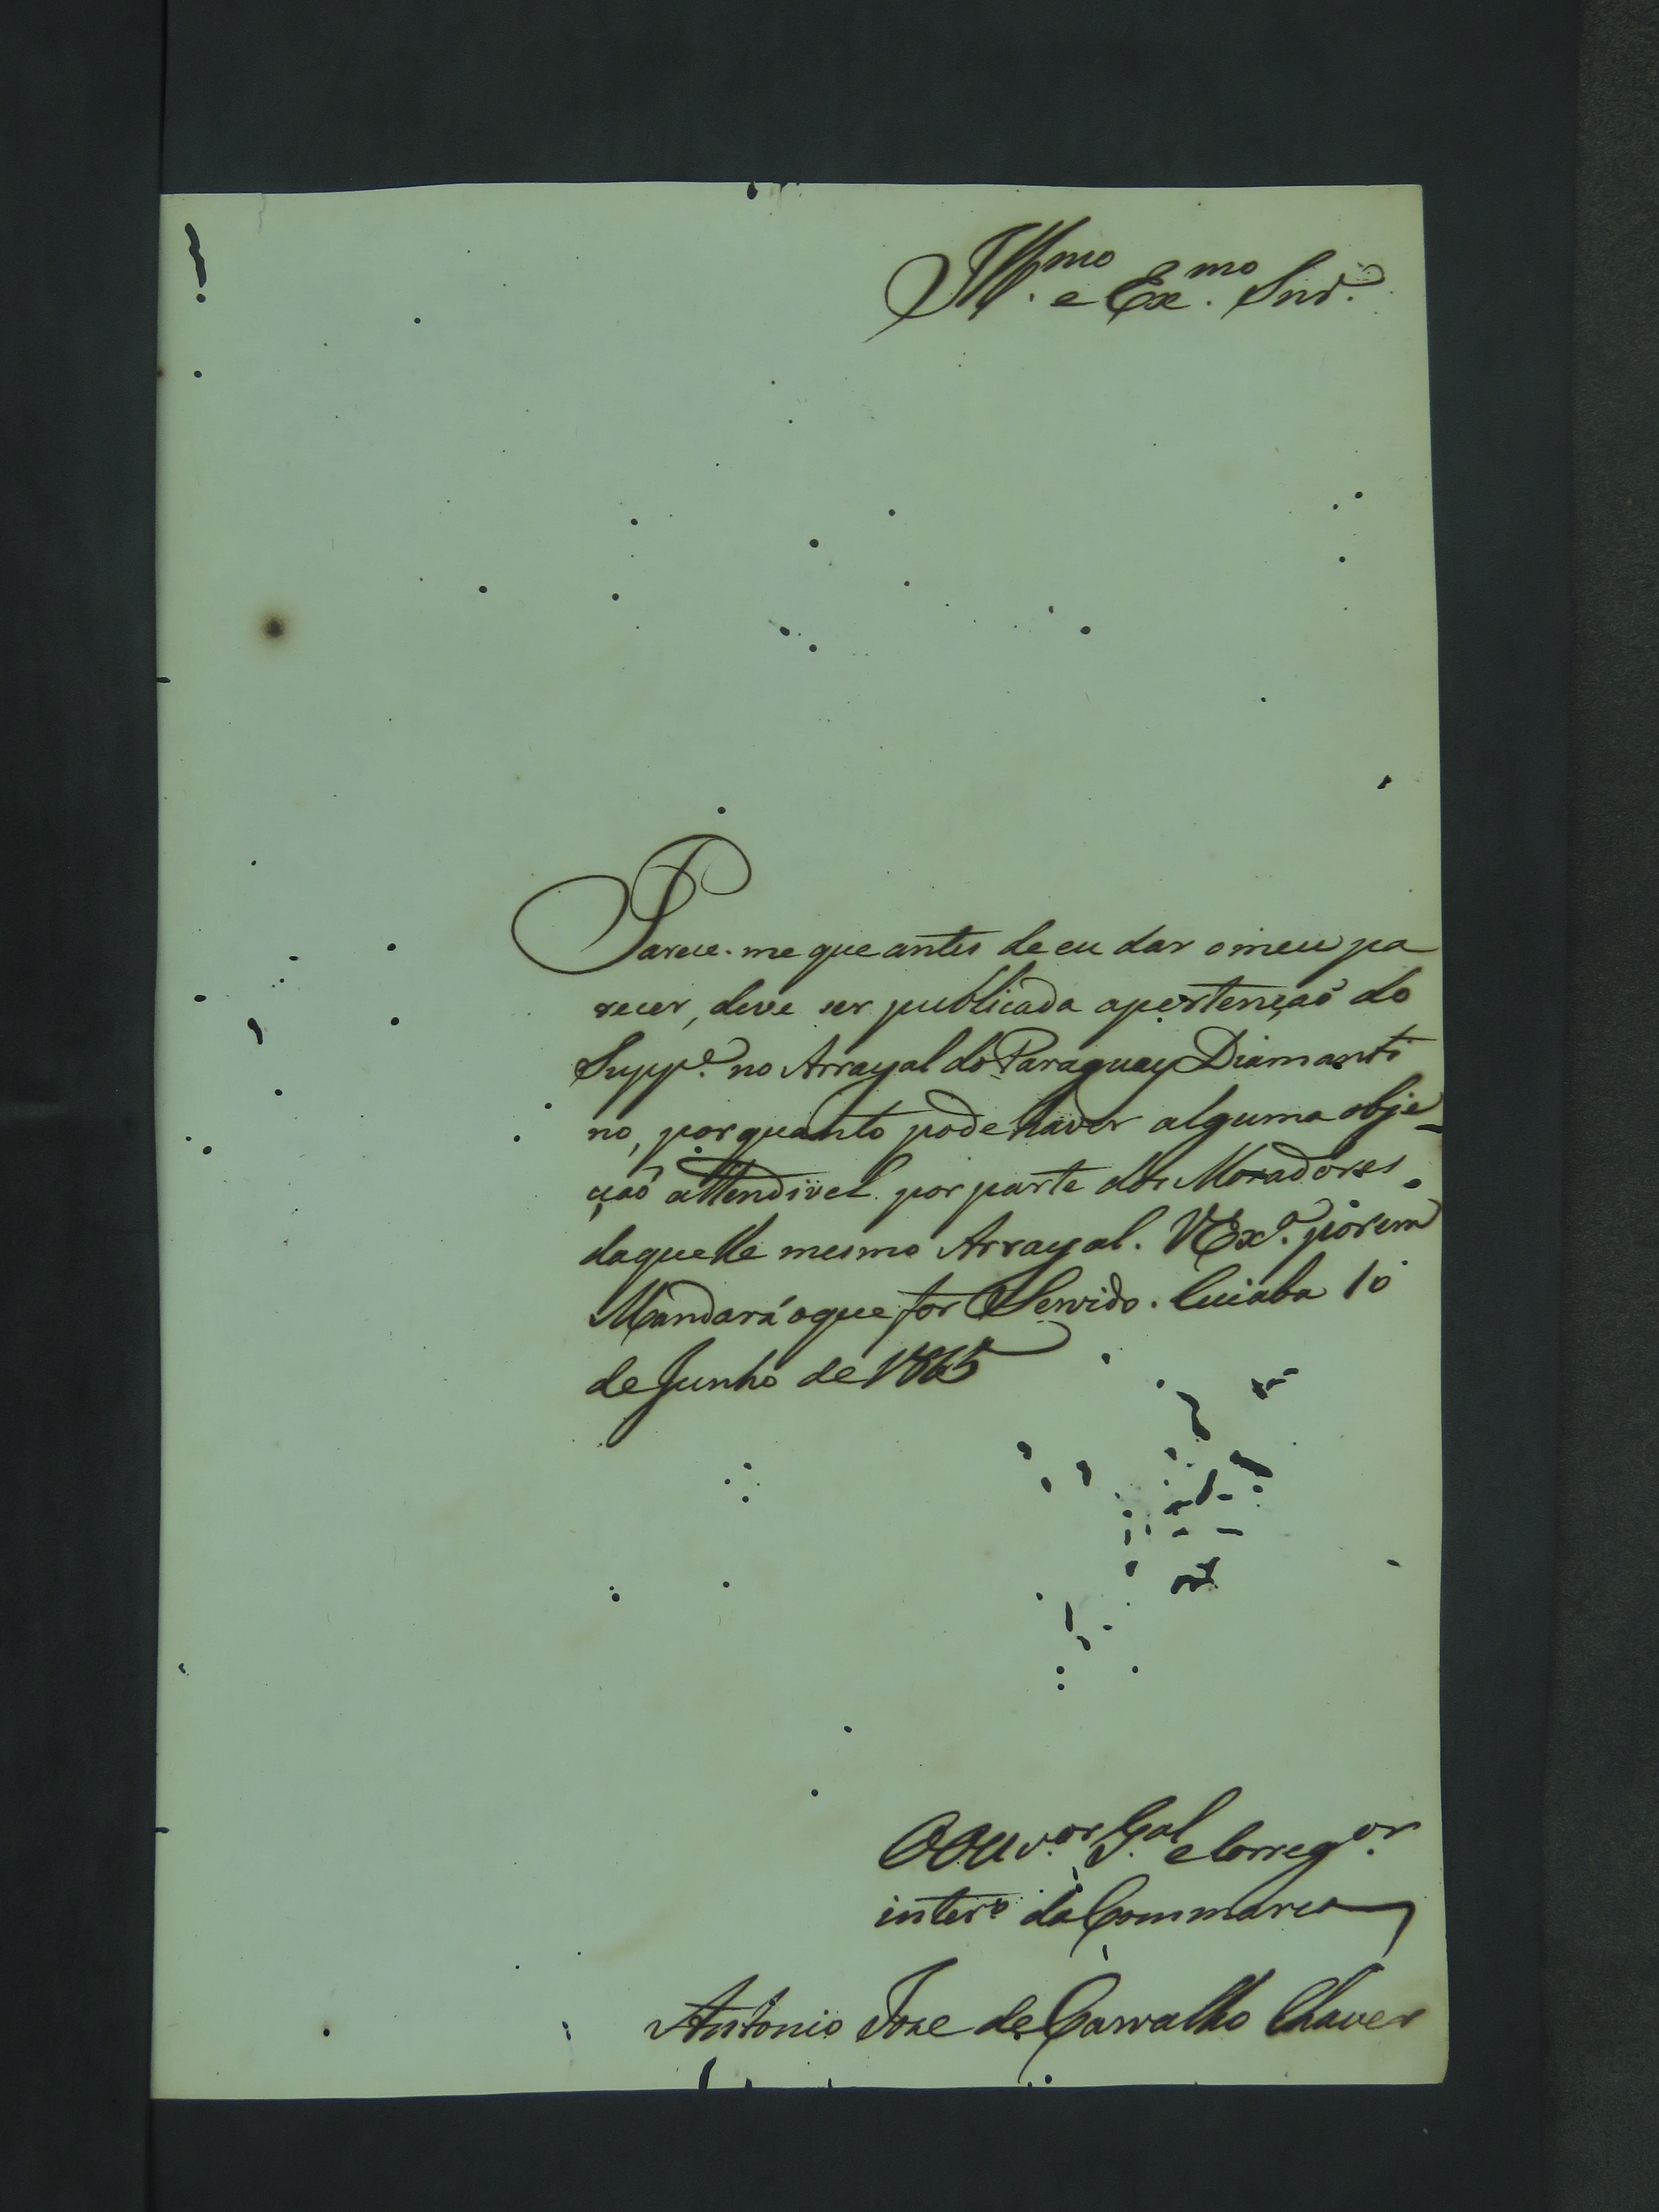 Ill.mo e Ex.mo Snr.
Parece-me que antes de eu dar o meu pa
recer, deve ser publicada apertençaõ do
Supp.e no Arrayal do Paraguay Diamanti
no, porquanto pode haver alguma obje-
çaõ attendivel por parte dos Moradores
daquelle mesmo Arrayal. VEx.a porem
Mandará oque for Servido. Cuiaba 10
de Junho de
OOuv.or G.al e Correg.or
inter.o da Commarca
Antonio Joze de Carvalho Chaves